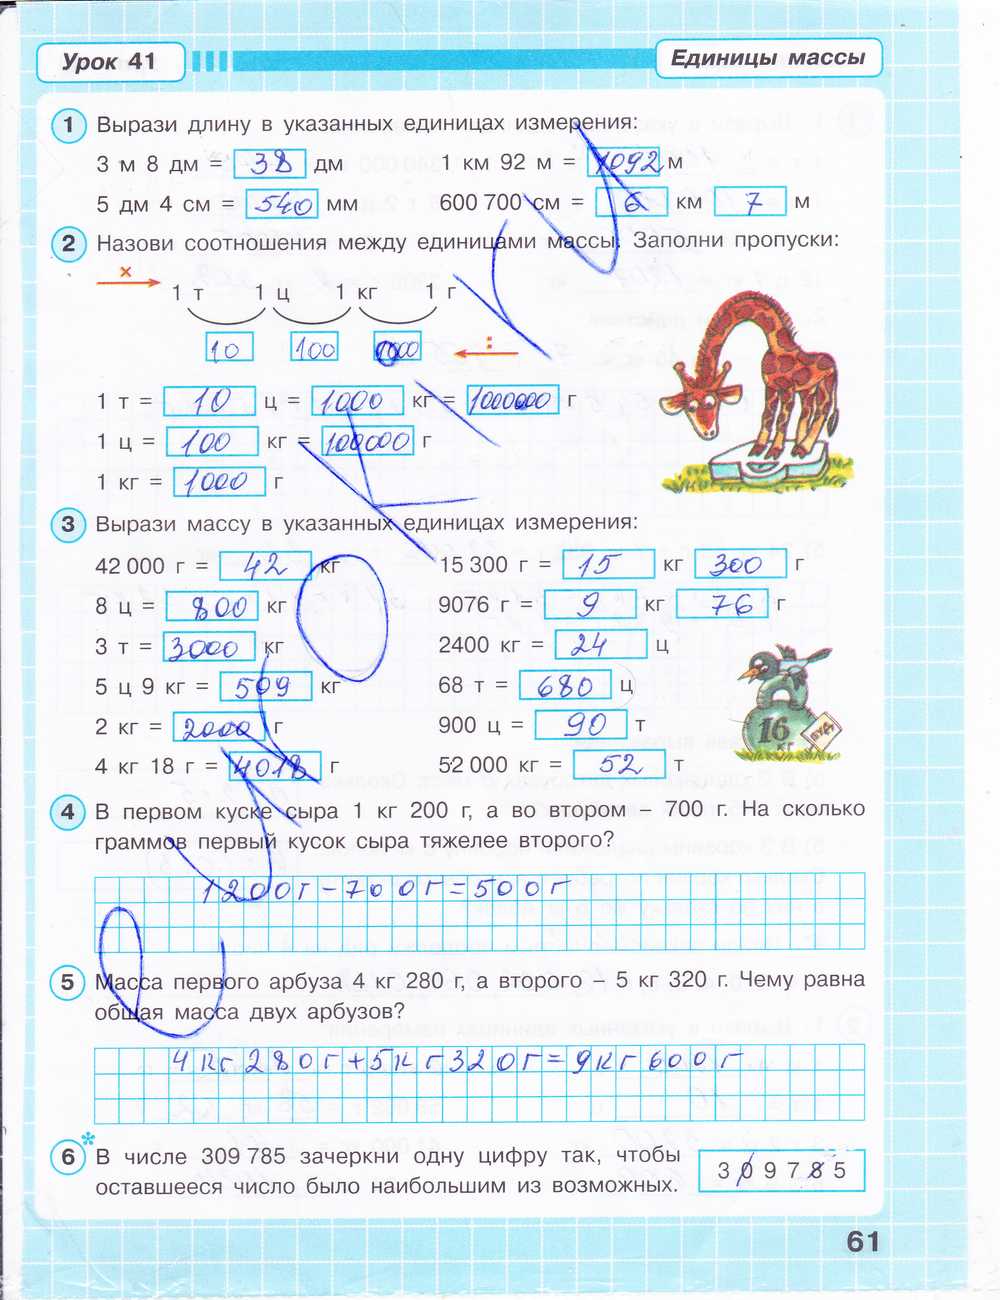 Урок 41
Единицы массы
1 Вырази длину в указанных единицах измерения:
3 м 8 дм = 38 дм 1 км 92 м = 1092 м
5 дм 4 см = 540 мм 600 700 см = 6 км 7 м
2 Назови соотношения между единицами массы. Заполни пропуски:
×
1 т 1 ц 1 кг 1 г
10 100 1000 :
1 т = 10 ц = 1000 кг = 1000000 г
1 ц = 100 кг = 100000 г
1 кг = 1000 г
3 Вырази массу в указанных единицах измерения:
42 000 г = 42 кг 15 300 г = 15 кг 300 г
8 ц = 800 кг 9076 г = 9 кг 76 г
3 т = 3000 кг 2400 кг = 24 ц
5 ц 9 кг = 509 кг 68 т = 680 ц
2 кг = 2000 г 900 ц = 90 т
4 кг 18 г = 4018 г 52 000 кг = 52 т
16 кг
4 В первом куске сыра 1 кг 200 г, а во втором – 700 г. На сколько
граммов первый кусок сыра тяжелее второго?
1200г-700г=500г
5 Масса первого арбуза 4 кг 280 г, а второго – 5 кг 320 г. Чему равна
общая масса двух арбузов?
4кг280г+5кг320г=9кг600г
6* В числе 309 785 зачеркни одну цифру так, чтобы
оставшееся число было наибольшим из возможных.
309785
61